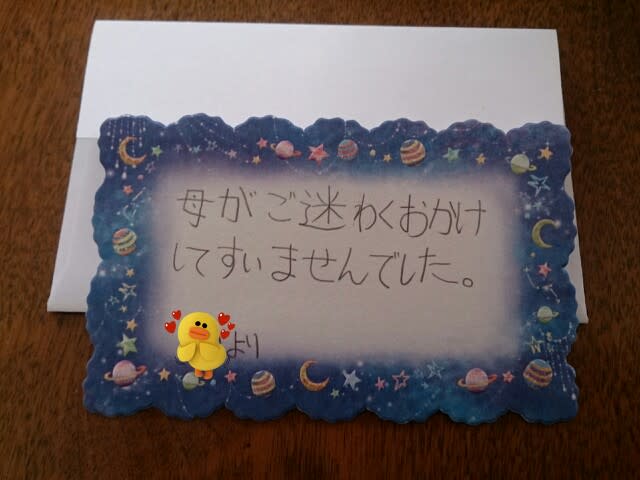 母がご迷わくおかけ
してすいませんでした。
より